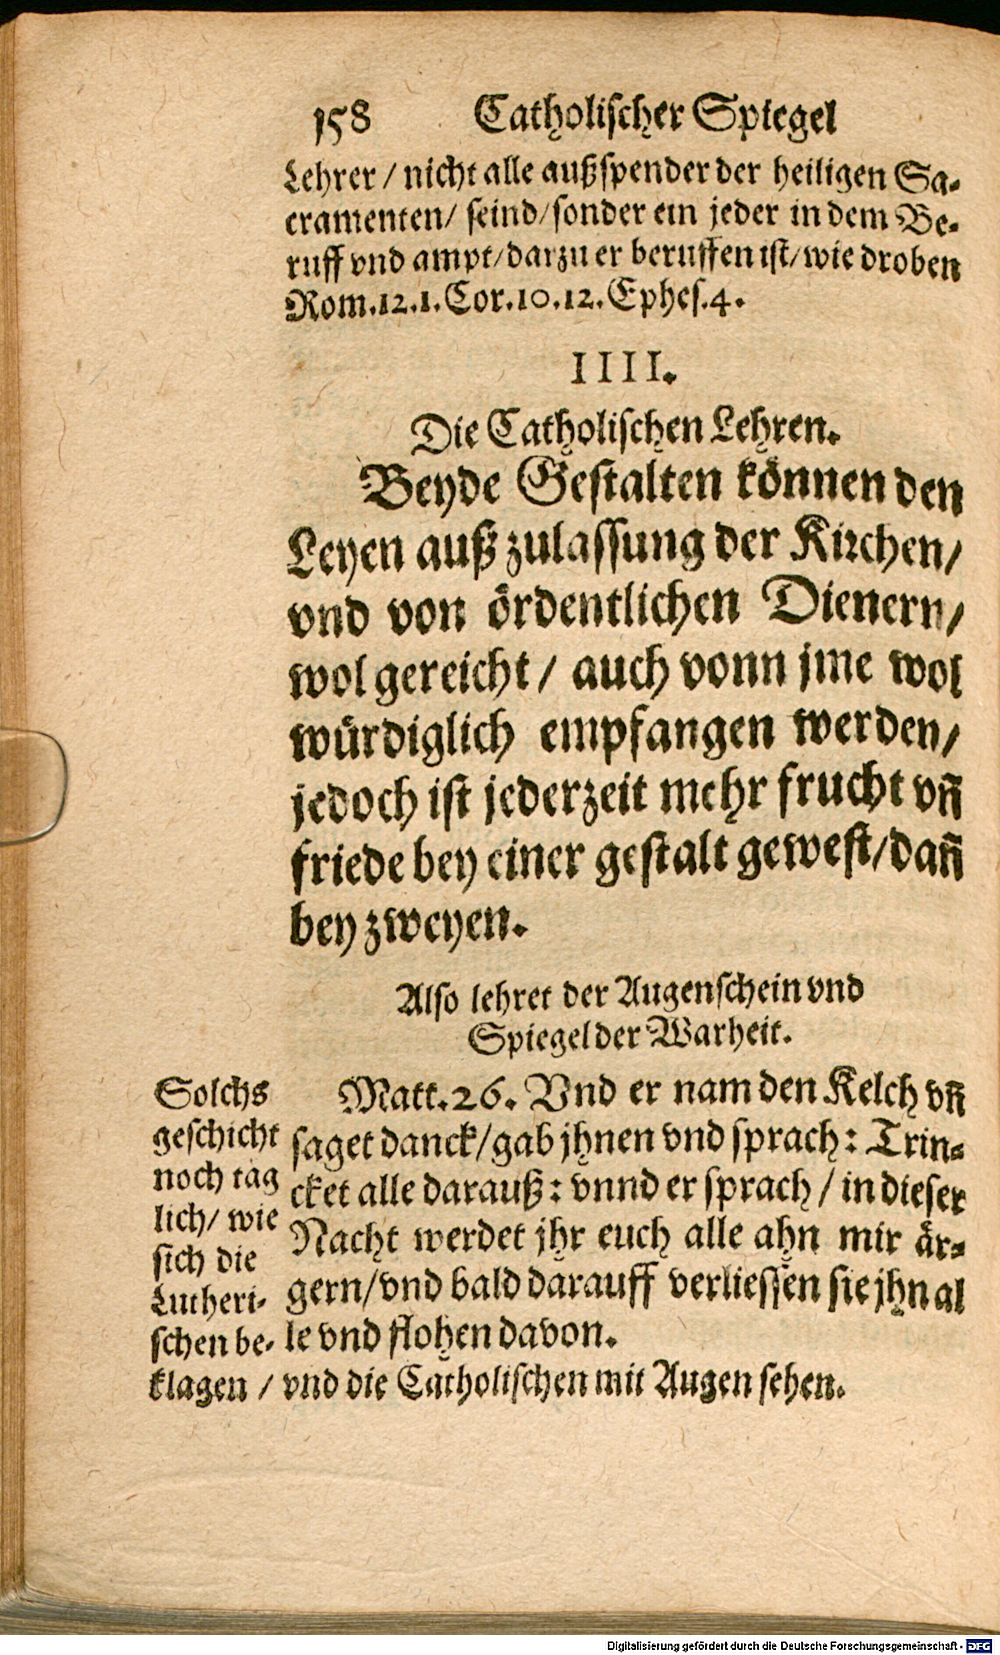 158 Catholischer Spiegel
Lehrer / nicht alle außspender der heiligen Sa-
cramenten/ seind/sonder ein jeder in dem Be-
ruff vnd ampt/darzu er beruffen ist/wie droben
Rom.12.1.Cor.10.12.Ephes.4.
IIII.
Die Catholischen Lehren.
Beyde Gestalten können den
Leyen auß zulassung der Kirchen/
vnd von ördentlichen Dienern/
wol gereicht / auch vonn jme wol
würdiglich empfangen werden/
jedoch ist jederzeit mehr frucht vñ
friede bey einer gestalt gewest/dañ
bey zweyen.
Also lehret der Augenschein vnd
Spiegel der Warheit.
Matt.26. Vnd er nam den Kelch vñ
saget danck/gab jhnen vnd sprach: Trin-
cket alle darauß: vnnd er sprach / in dieser
Nacht werdet jhr euch alle ahn mir är-
gern/vnd bald darauff verliessen sie jhn al
le vnd flohen davon.
Solchs
geschicht
noch tag
lich/ wie
sich die
Lutheri-
schen be-
klagen / vnd die Catholischen mit Augen sehen.
Digitalisierung gefördert durch die Deutsche Forschungsgemeinschaft - DFG